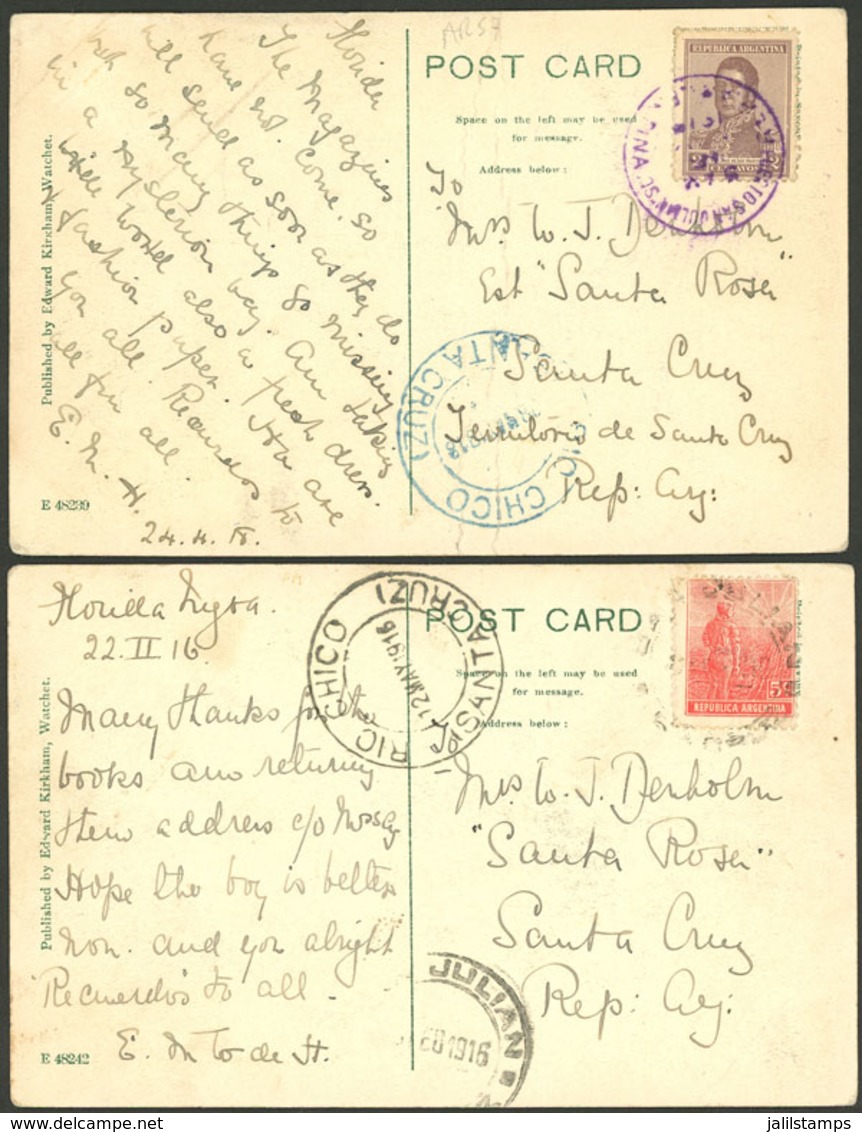 AR57
POST CARD
Space on the left may be used
for message.
Address below:
REPUBLICA ARGENTINA
2
CENTAVOS
The Magazines
have not come, so
will send as soon as they do
but so many things go missing
in a mysterious way. Am taking
little also a fresh dress.
& fashion paper. Hta are
you all. Recuerdos to
all for all.
E. M. H.
24.4.18.
Published by Edward Kirkham, Watchet.
E 48239
To
Mrs W. J. Denholm
Est "Santa Rosa"
Santa Cruz
Territorio de Santa Cruz
Rep: Arg:
CHICO
SANTA CRUZ)
1918
22.II.16
Many thanks for the
books am returning
them address c/o
Hope the boy is better
now. and you alright
Recuerdos to all.
E. M to de H.
Published by Edward Kirkham, Watchet.
E 48242
RIO CHICO
(SANTA CRUZ)
12 MAY 1916
POST CARD
Space on the left may be used
for message.
Address below:
5c
REPÚBLICA ARGENTINA
Mrs W. J. Denholm
"Santa Rosa"
Santa Cruz
Rep: Arg:
JULIAN
1916
jalilstamps